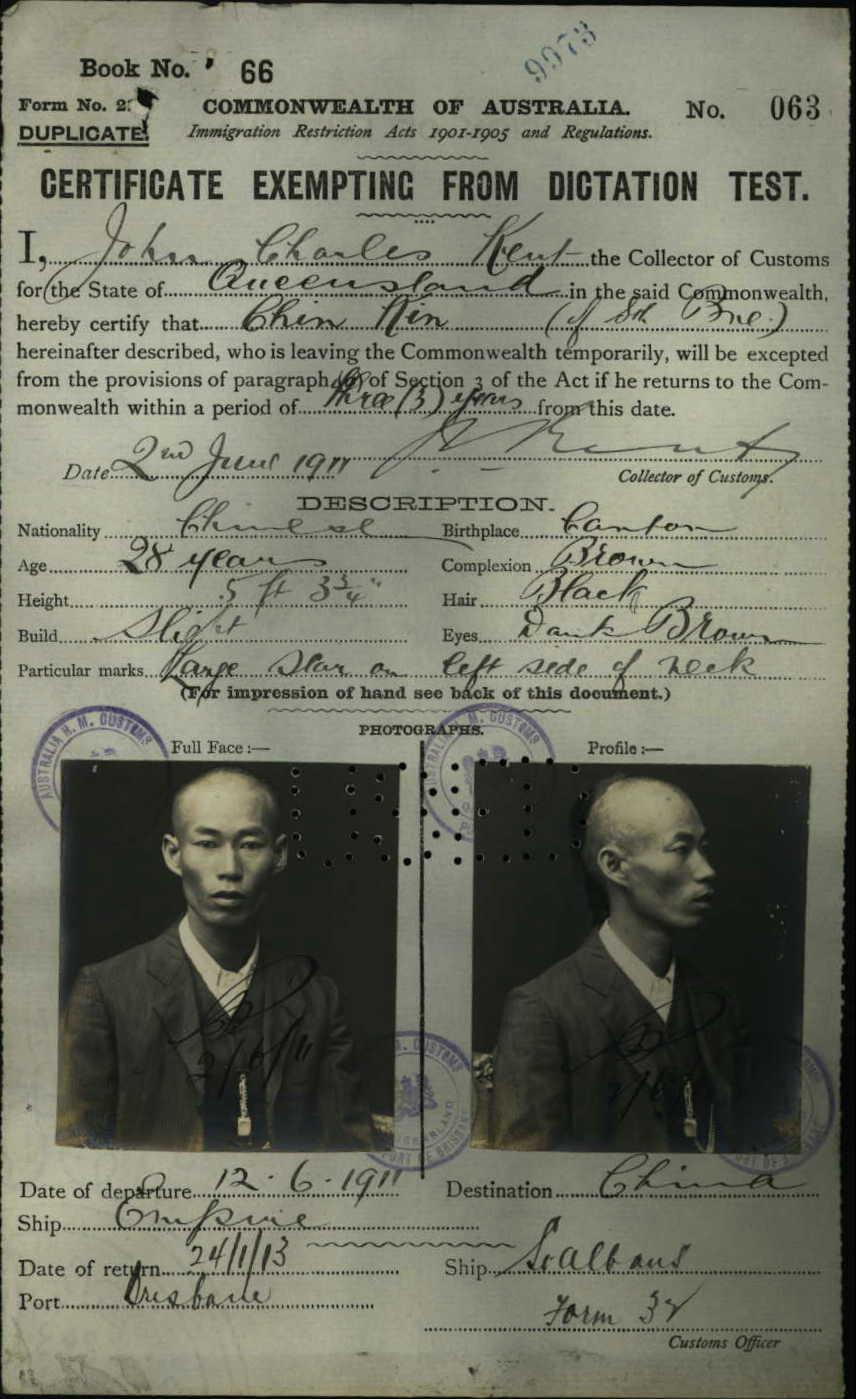 9973
Book No. 66
Form No. 2. COMMONWEALTH OF AUSTRALIA. No. 063
DUPLICATE. Immigration Restriction Acts 1901-1905 and Regulations.
CERTIFICATE EXEMPTING FROM DICTATION TEST.
I, John Charles Kent the Collector of Customs
for the State of Queensland in the said Commonwealth,
hereby certify that Chin Kin (of Sth Bne.)
hereinafter described, who is leaving the Commonwealth temporarily, will be excepted
from the provisions of paragraph of Section 3 of the Act if he returns to the Com-
monwealth within a period of three (3) years from this date.
Date 2nd June 1911
Collector of Customs.
DESCRIPTION.
Nationality Chinese Birthplace Canton
Age 28 years Complexion Brown
Height 5 ft 3¾" Hair Black
Build Slight Eyes Dark Brown
Particular marks Large Scar on left side of neck
(For impression of hand see back of this document.)
PHOTOGRAPHS.
Full Face :— Profile :—
AUSTRALIA H. M. CUSTOMS
2/6/11
Date of departure 12.6.1911 Destination China
Ship Empire
Date of return 24/1/13 Ship St Albans
Port Brisbane
Form 32
Customs Officer